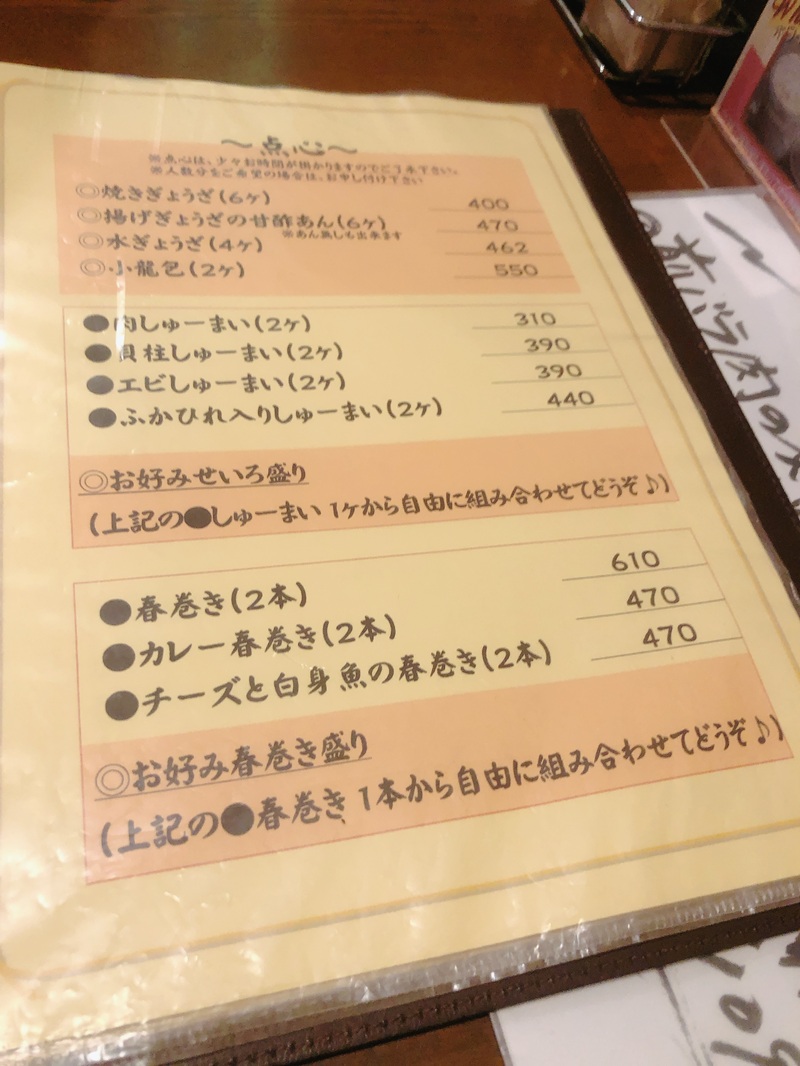 ～点心～
※点心は、少々お時間が掛かりますのでご了承下さい。
※人数分をご希望の場合は、お申し付け下さい
◎焼きぎょうざ(6ヶ) 400
◎揚げぎょうざの甘酢あん(6ヶ) 470
※あん無しも出来ます
◎水ぎょうざ(4ヶ) 462
◎小龍包(2ヶ) 550
●肉しゅーまい(2ヶ) 310
●貝柱しゅーまい(2ヶ) 390
●エビしゅーまい(2ヶ) 390
●ふかひれ入りしゅーまい(2ヶ) 440
◎お好みせいろ盛り
(上記の●しゅーまい 1ヶから自由に組み合わせてどうぞ♪)
●春巻き(2本) 610
●カレー春巻き(2本) 470
●チーズと白身魚の春巻き(2本) 470
◎お好み春巻き盛り
(上記の●春巻き 1本から自由に組み合わせてどうぞ♪)